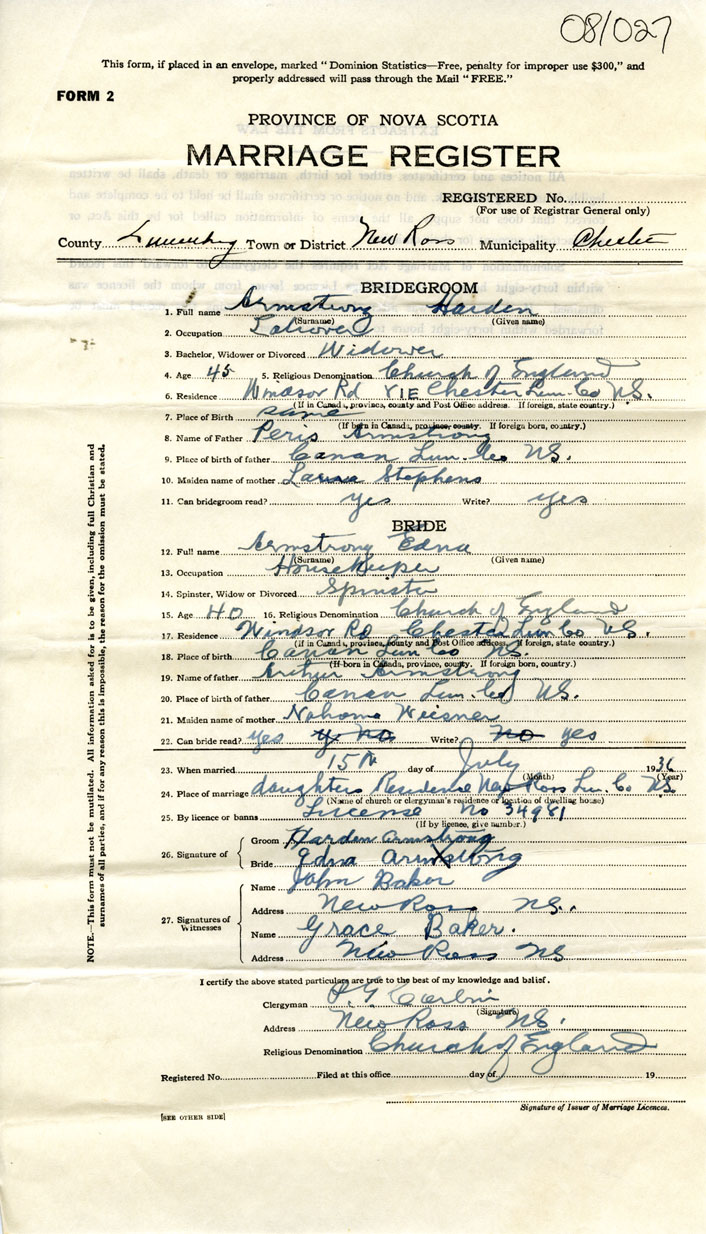 08/027
This form, if placed in an envelope, marked "Dominion Statistics—Free, penalty for improper use $300," and
properly addressed will pass through the Mail "FREE."
FORM 2
PROVINCE OF NOVA SCOTIA
MARRIAGE REGISTER
REGISTERED No.
(For use of Registrar General only)
County Lunenburg Town or District New Ross Municipality Chester
BRIDEGROOM
1. Full name Armstrong Harden
(Surname) (Given name)
2. Occupation Labourer
3. Bachelor, Widower or Divorced Widower
4. Age 45 5. Religious Denomination Church of England
6. Residence Windsor Rd Chester Lun. Co N.S.
(If in Canada, province, county and Post Office address. If foreign, state country.)
7. Place of Birth same
(If born in Canada, province, county. If foreign born, country.)
8. Name of Father Peris Armstrong
9. Place of birth of father Canan Lun. Co NS.
10. Maiden name of mother Stephens
11. Can bridegroom read? yes Write? yes
BRIDE
12. Full name Armstrong Edna
(Surname) (Given name)
13. Occupation HouseKeeper
14. Spinster, Widow or Divorced Spinster
15. Age 40 16. Religious Denomination Church of England
17. Residence Windsor Rd Chester Lun. Co N.S.
(if in Canada, province, county and Post Office address. If foreign, state country.)
18. Place of birth Canan Lun Co NS.
(If born in Canada, province, county. If foreign born, country.)
19. Name of father Arthur Armstrong
20. Place of birth of father Canan Lun. Co NS.
21. Maiden name of mother Nahoma Weisner
22. Can bride read? yes no Write? no yes
23. When married 15th day of July 1936
(Month) (Year)
24. Place of marriage daughters Residence New Ross Lun. Co NS
(Name of church or clergyman's residence or location of dwelling house)
25. By licence or banns License No 34981
(If by licence, give number.)
26. Signature of
Groom Harden Armstrong
Bride Edna Armstrong X
27. Signatures of Witnesses
Name John Baker
Address New Ross NS.
Name Grace Baker.
Address New Ross NS
I certify the above stated particulars are true to the best of my knowledge and belief.
Clergyman
(Signature)
Address New Ross NS.
Religious Denomination Church of England
Registered No. Filed at this office day of 19
Signature of Issuer of Marriage Licences.
[SEE OTHER SIDE]
NOTE.—This form must not be mutilated. All information asked for is to be given, including full Christian and
surnames of all parties, and if for any reason this is impossible, the reason for the omission must be stated.